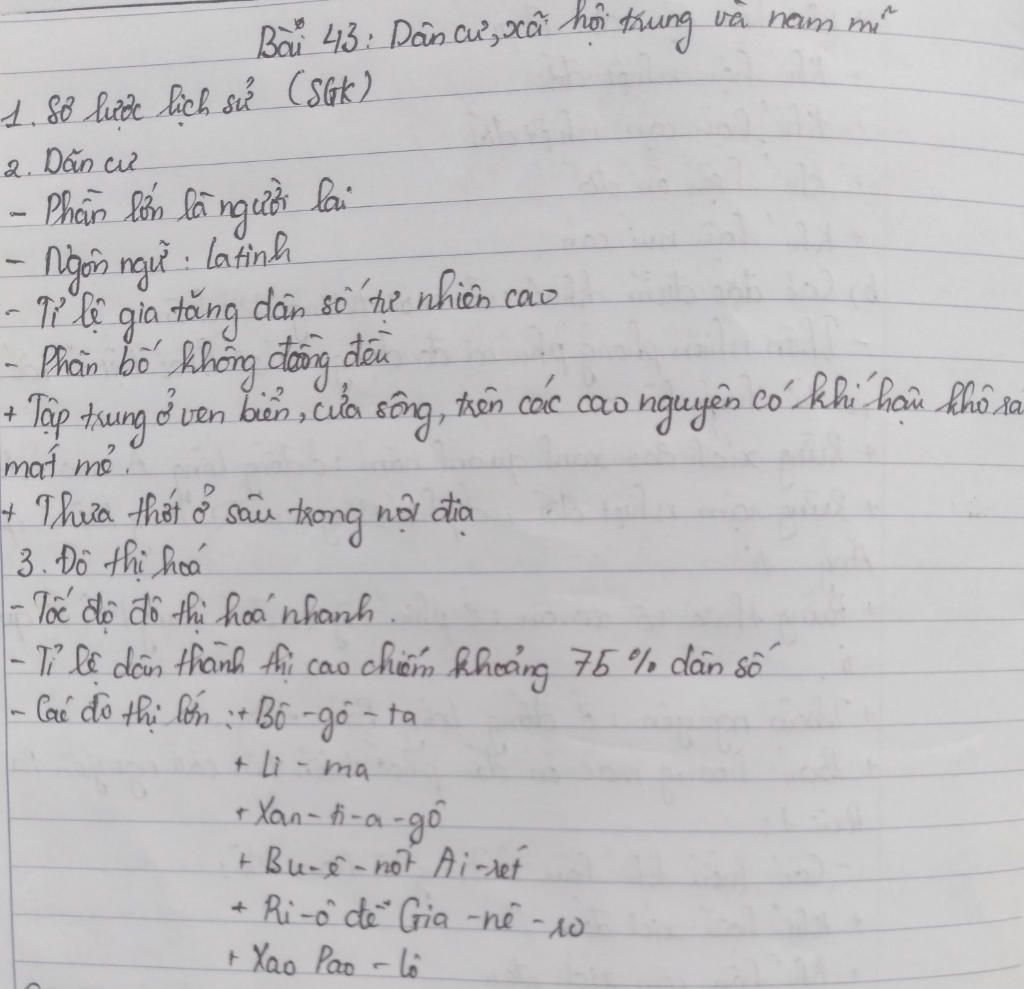 Bài 43: Dân cư, xã hội trung và nam mĩ
1. Sơ lược lịch sử (SGK)
2. Dân cư
- Phần lớn là người lai
- Ngôn ngữ: latinh
- Tỉ lệ gia tăng dân số tự nhiên cao
- Phân bố không đồng đều
+ Tập trung ở ven biển, cửa sông, trên các cao nguyên có khí hậu khô ráo
mát mẻ.
+ Thưa thớt ở sâu trong nội địa
3. Đô thị hoá
- Tốc độ đô thị hoá nhanh.
- Tỉ lệ dân thành thị cao chiếm khoảng 75% dân số
- Các đô thị lớn: + Bô-gô-ta
+ Li-ma
+ Xan-ti-a-gô
+ Bu-ê-nốt Ai-rét
+ Ri-ô đê Gia-nê-rô
+ Xao Pao-lô